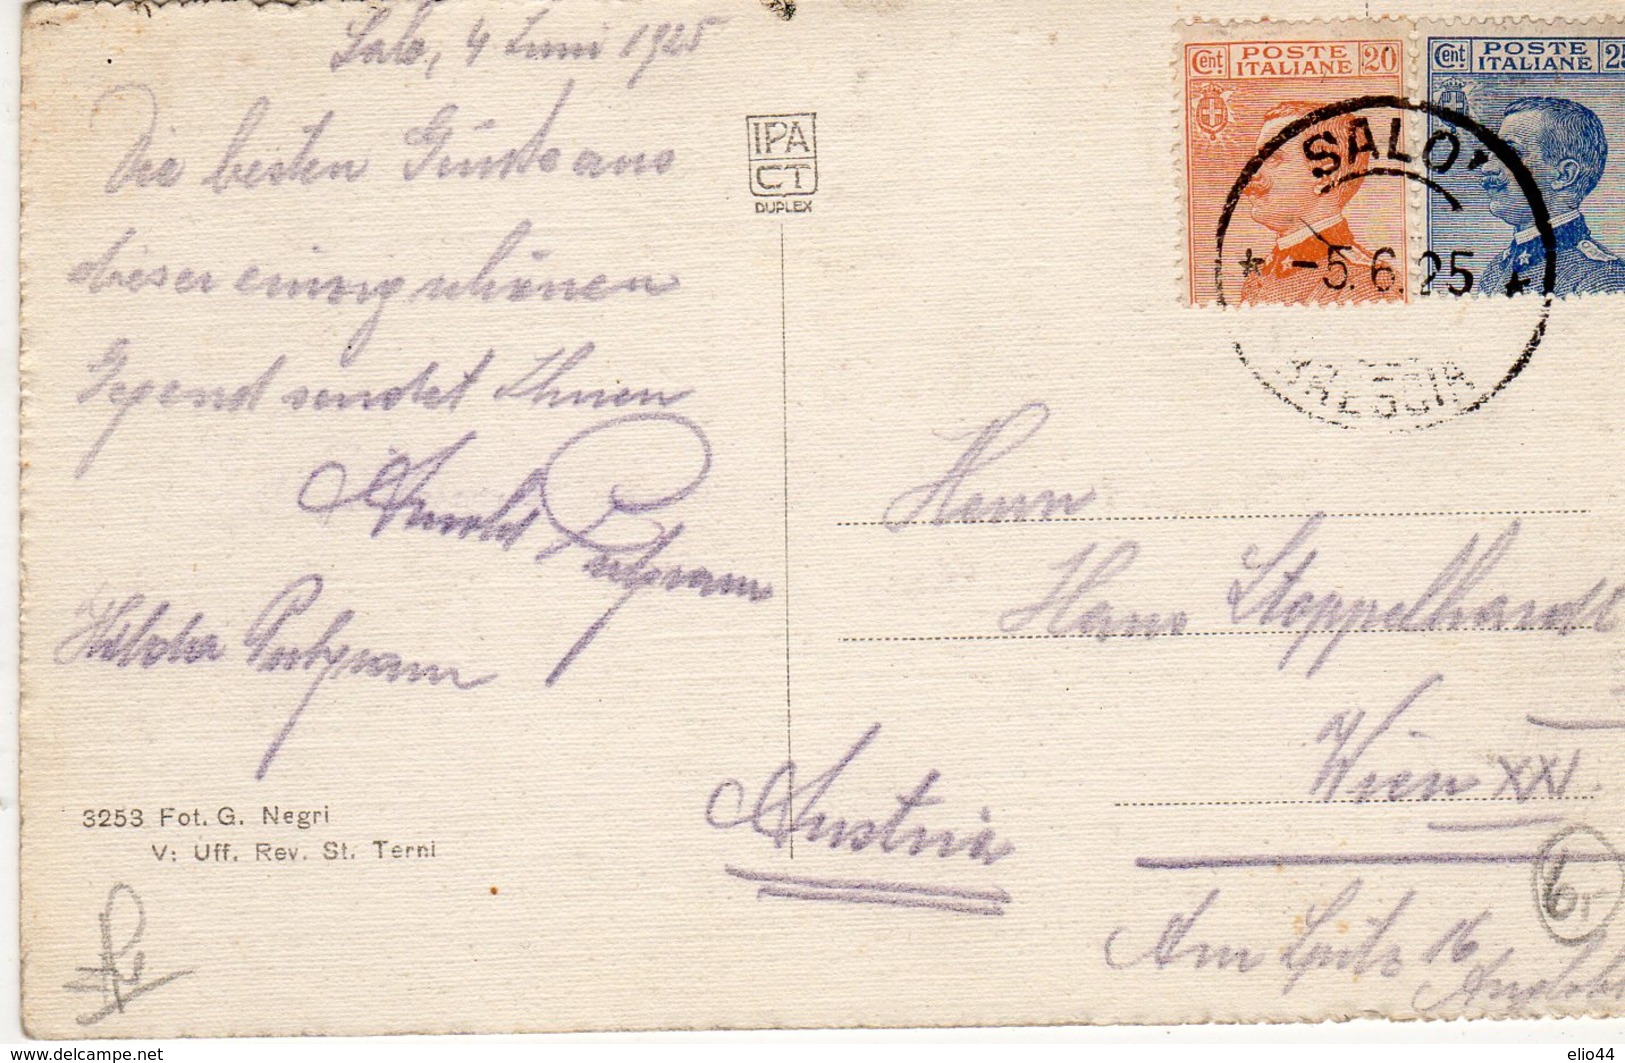 Salo, 4 Juni 1925
Die besten Grüße aus
dieser einzig schönen
Gegend sendet Ihnen
Arnold
Hilda
3253 Fot. G. Negri
V: Uff. Rev. St. Terni
IPA
CT
DUPLEX
Cent POSTE ITALIANE 20
Cent POSTE ITALIANE 25
SALO'
-5.6.25
BRESCIA
Herrn
Hans Stoppelhardt
Wien XXI.
Austria
Am Spitz 16
www.delcampe.net
elio44